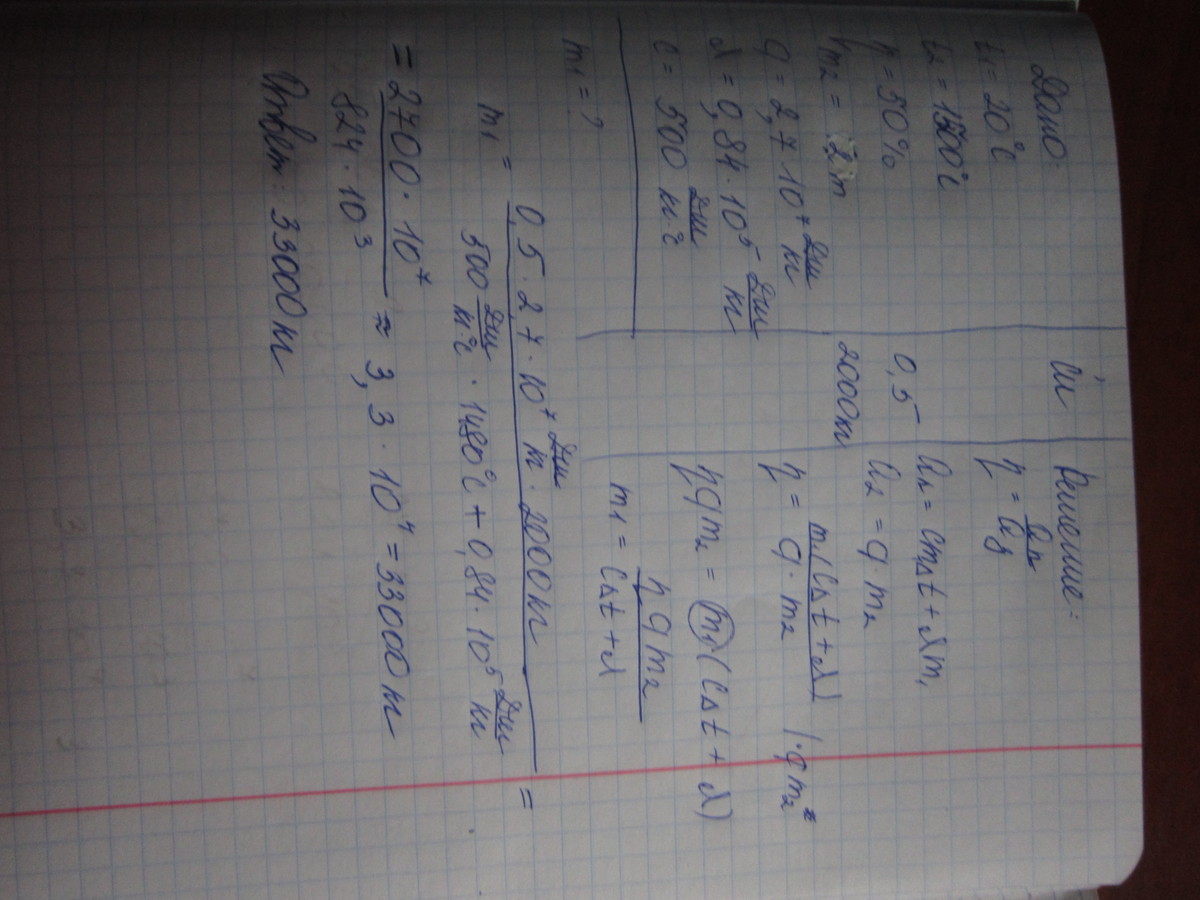 Дано:
t₁ = 20°C
t₂ = 1500°C
η = 50%
m₂ = 2т
q = 2,7·10⁷ Дж/кг
λ = 0,84·10⁵ Дж/кг
c = 500 Дж/кг·°C
m₁ = ?
Си
0,5
2000кг
Решение:
η = Qп/Qз
Qп = cm₁Δt + λm₁
Q₂ = q·m₂
η = m₁(cΔt + λ)/q·m₂ |·qm₂
ηqm₂ = m₁(cΔt + λ)
m₁ = ηqm₂/cΔt + λ
m₁ = 0,5·2,7·10⁷ Дж/кг·2000кг/500 Дж/кг·°C · 1480°C + 0,84·10⁵ Дж/кг =
= 2700·10⁷/824·10³ ≈ 3,3·10⁴ = 33000кг
Ответ: 33000кг